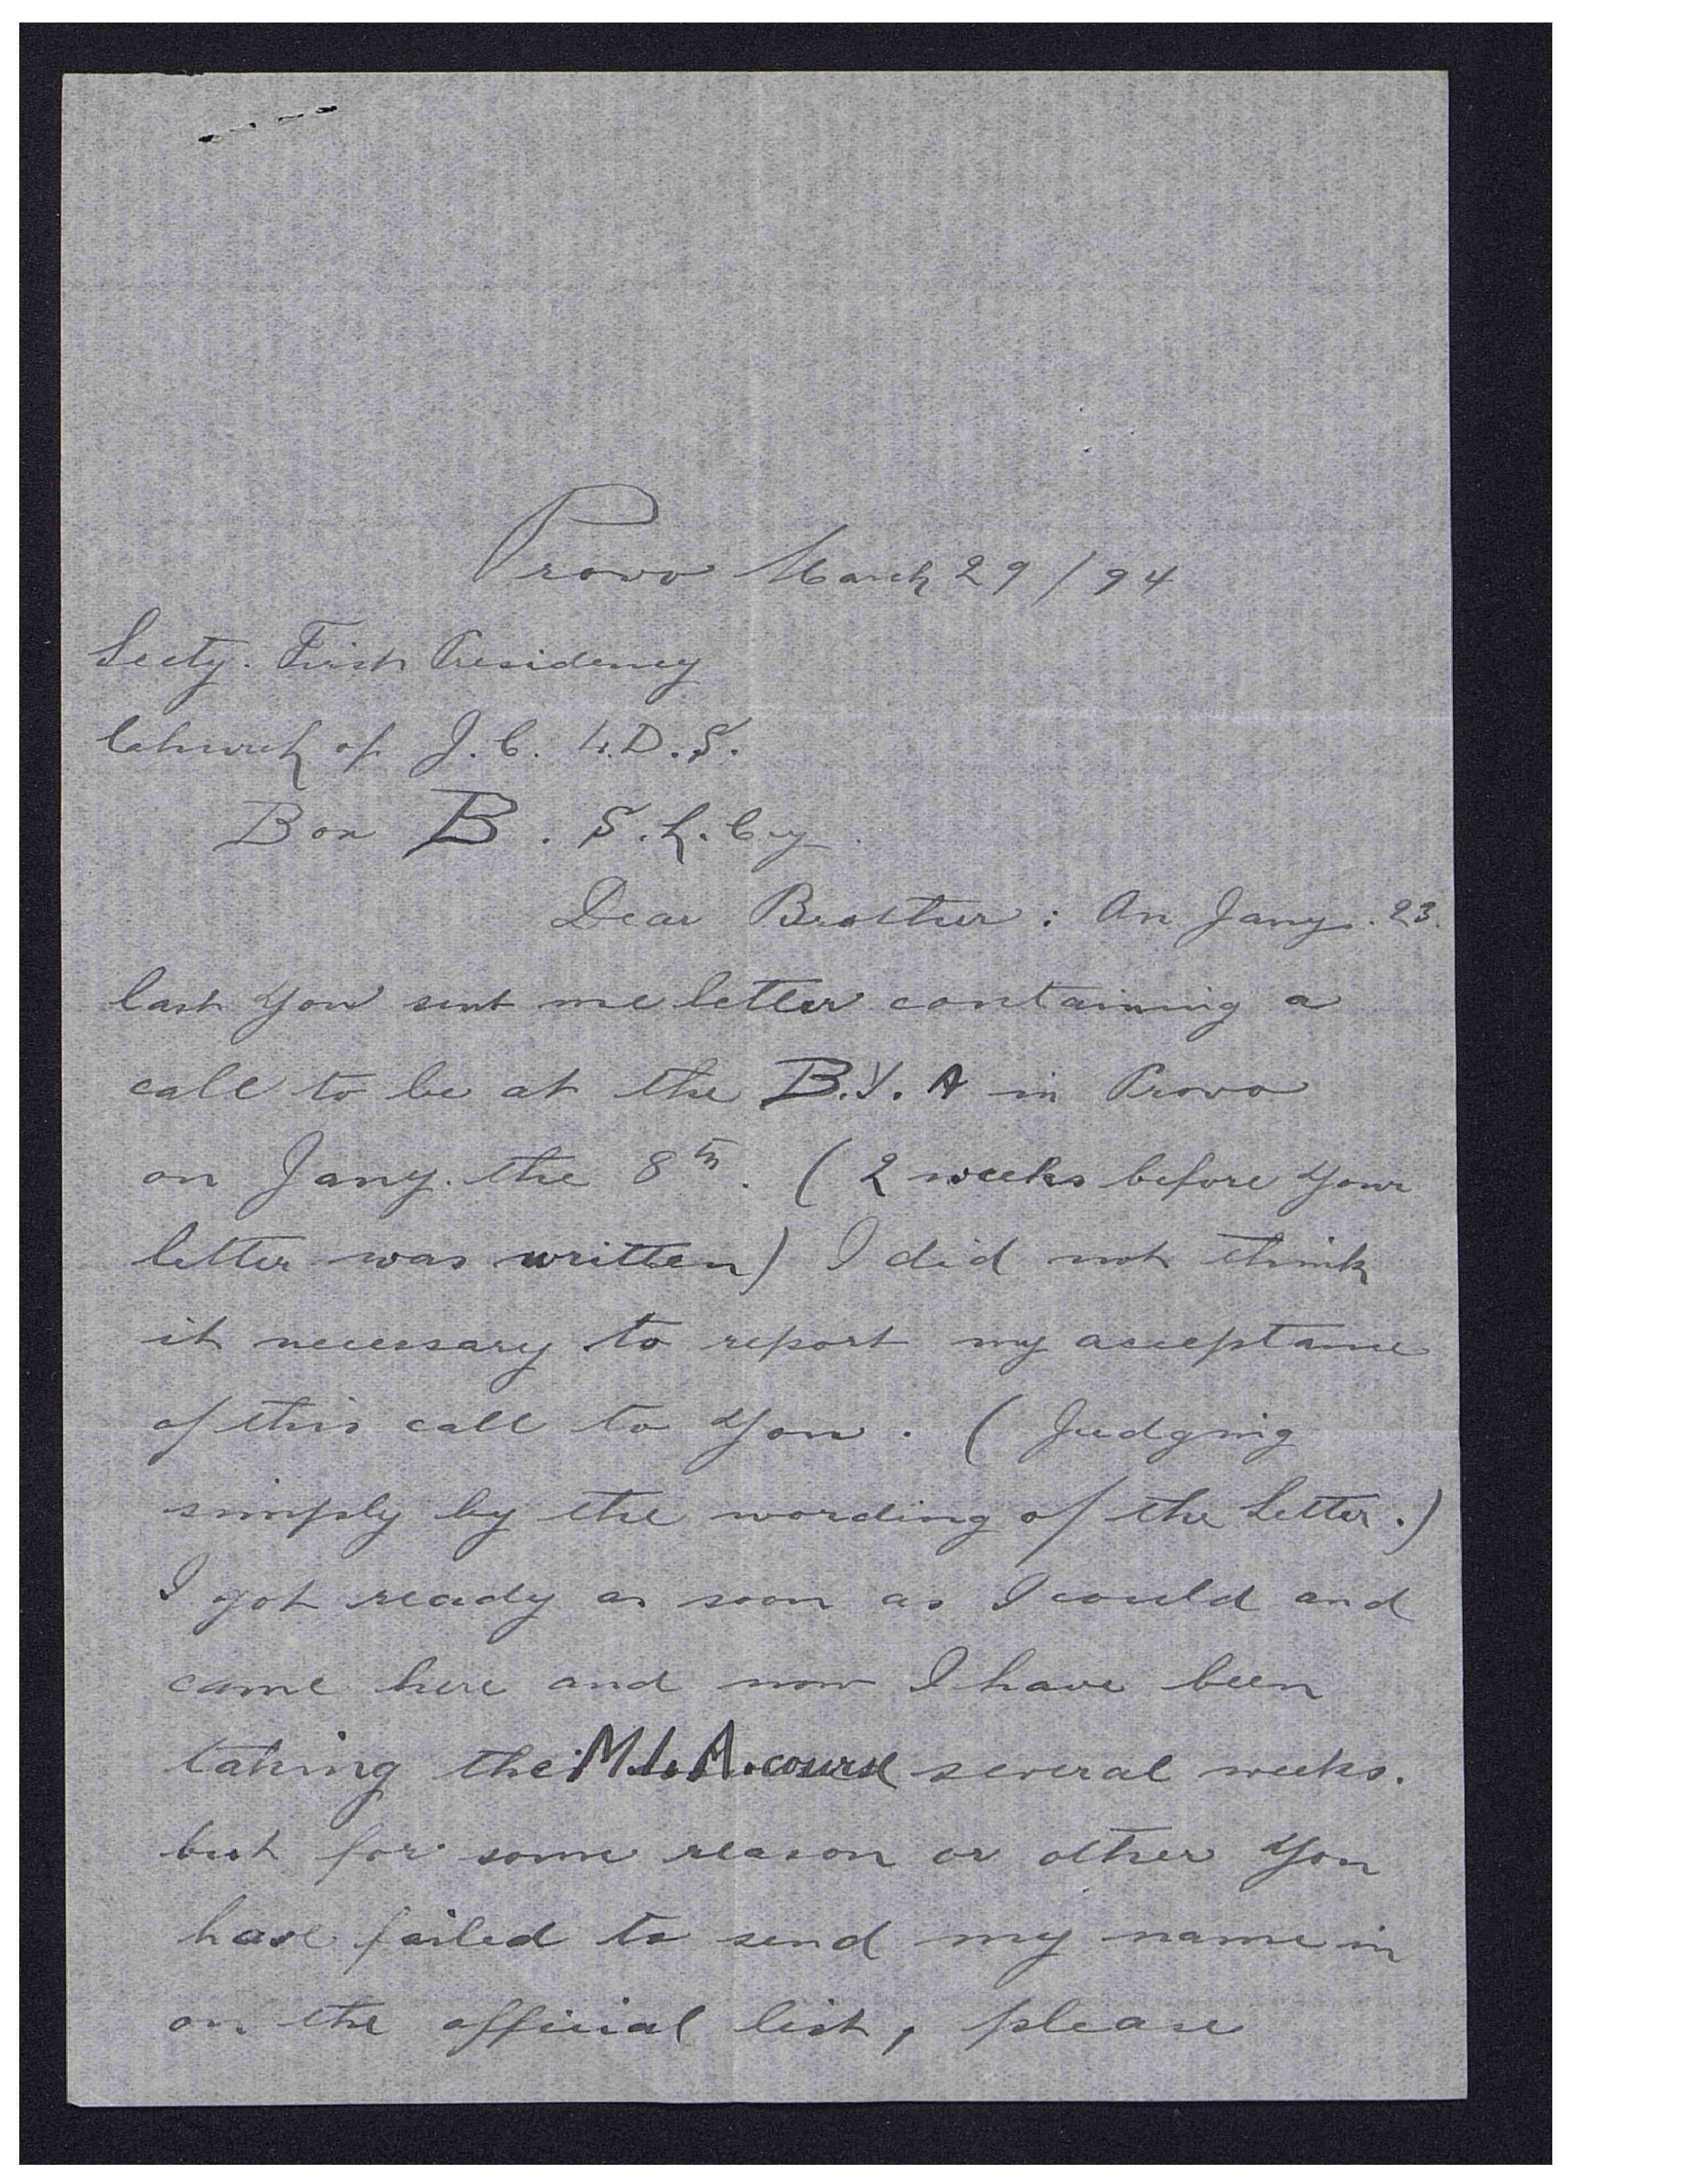 Provo March 29/94
Secty. First Presidency
Church of J.C. L.D.S.
Box B. S.L.Cy.
Dear Brother: On Jany. 23.
last You sent me letter containing a
call to be at the B.Y.A in Provo
on Jany. the 8th. (2 weeks before Your
letter was written) I did not think
it necessary to report my acceptance
of this call to You. (Judging
simply by the wording of the Letter.)
I got ready as soon as I could and
came here and now I have been
taking the M.I.A. course several weeks.
but for some reason or other You
have failed to send my name in
on the official list, please